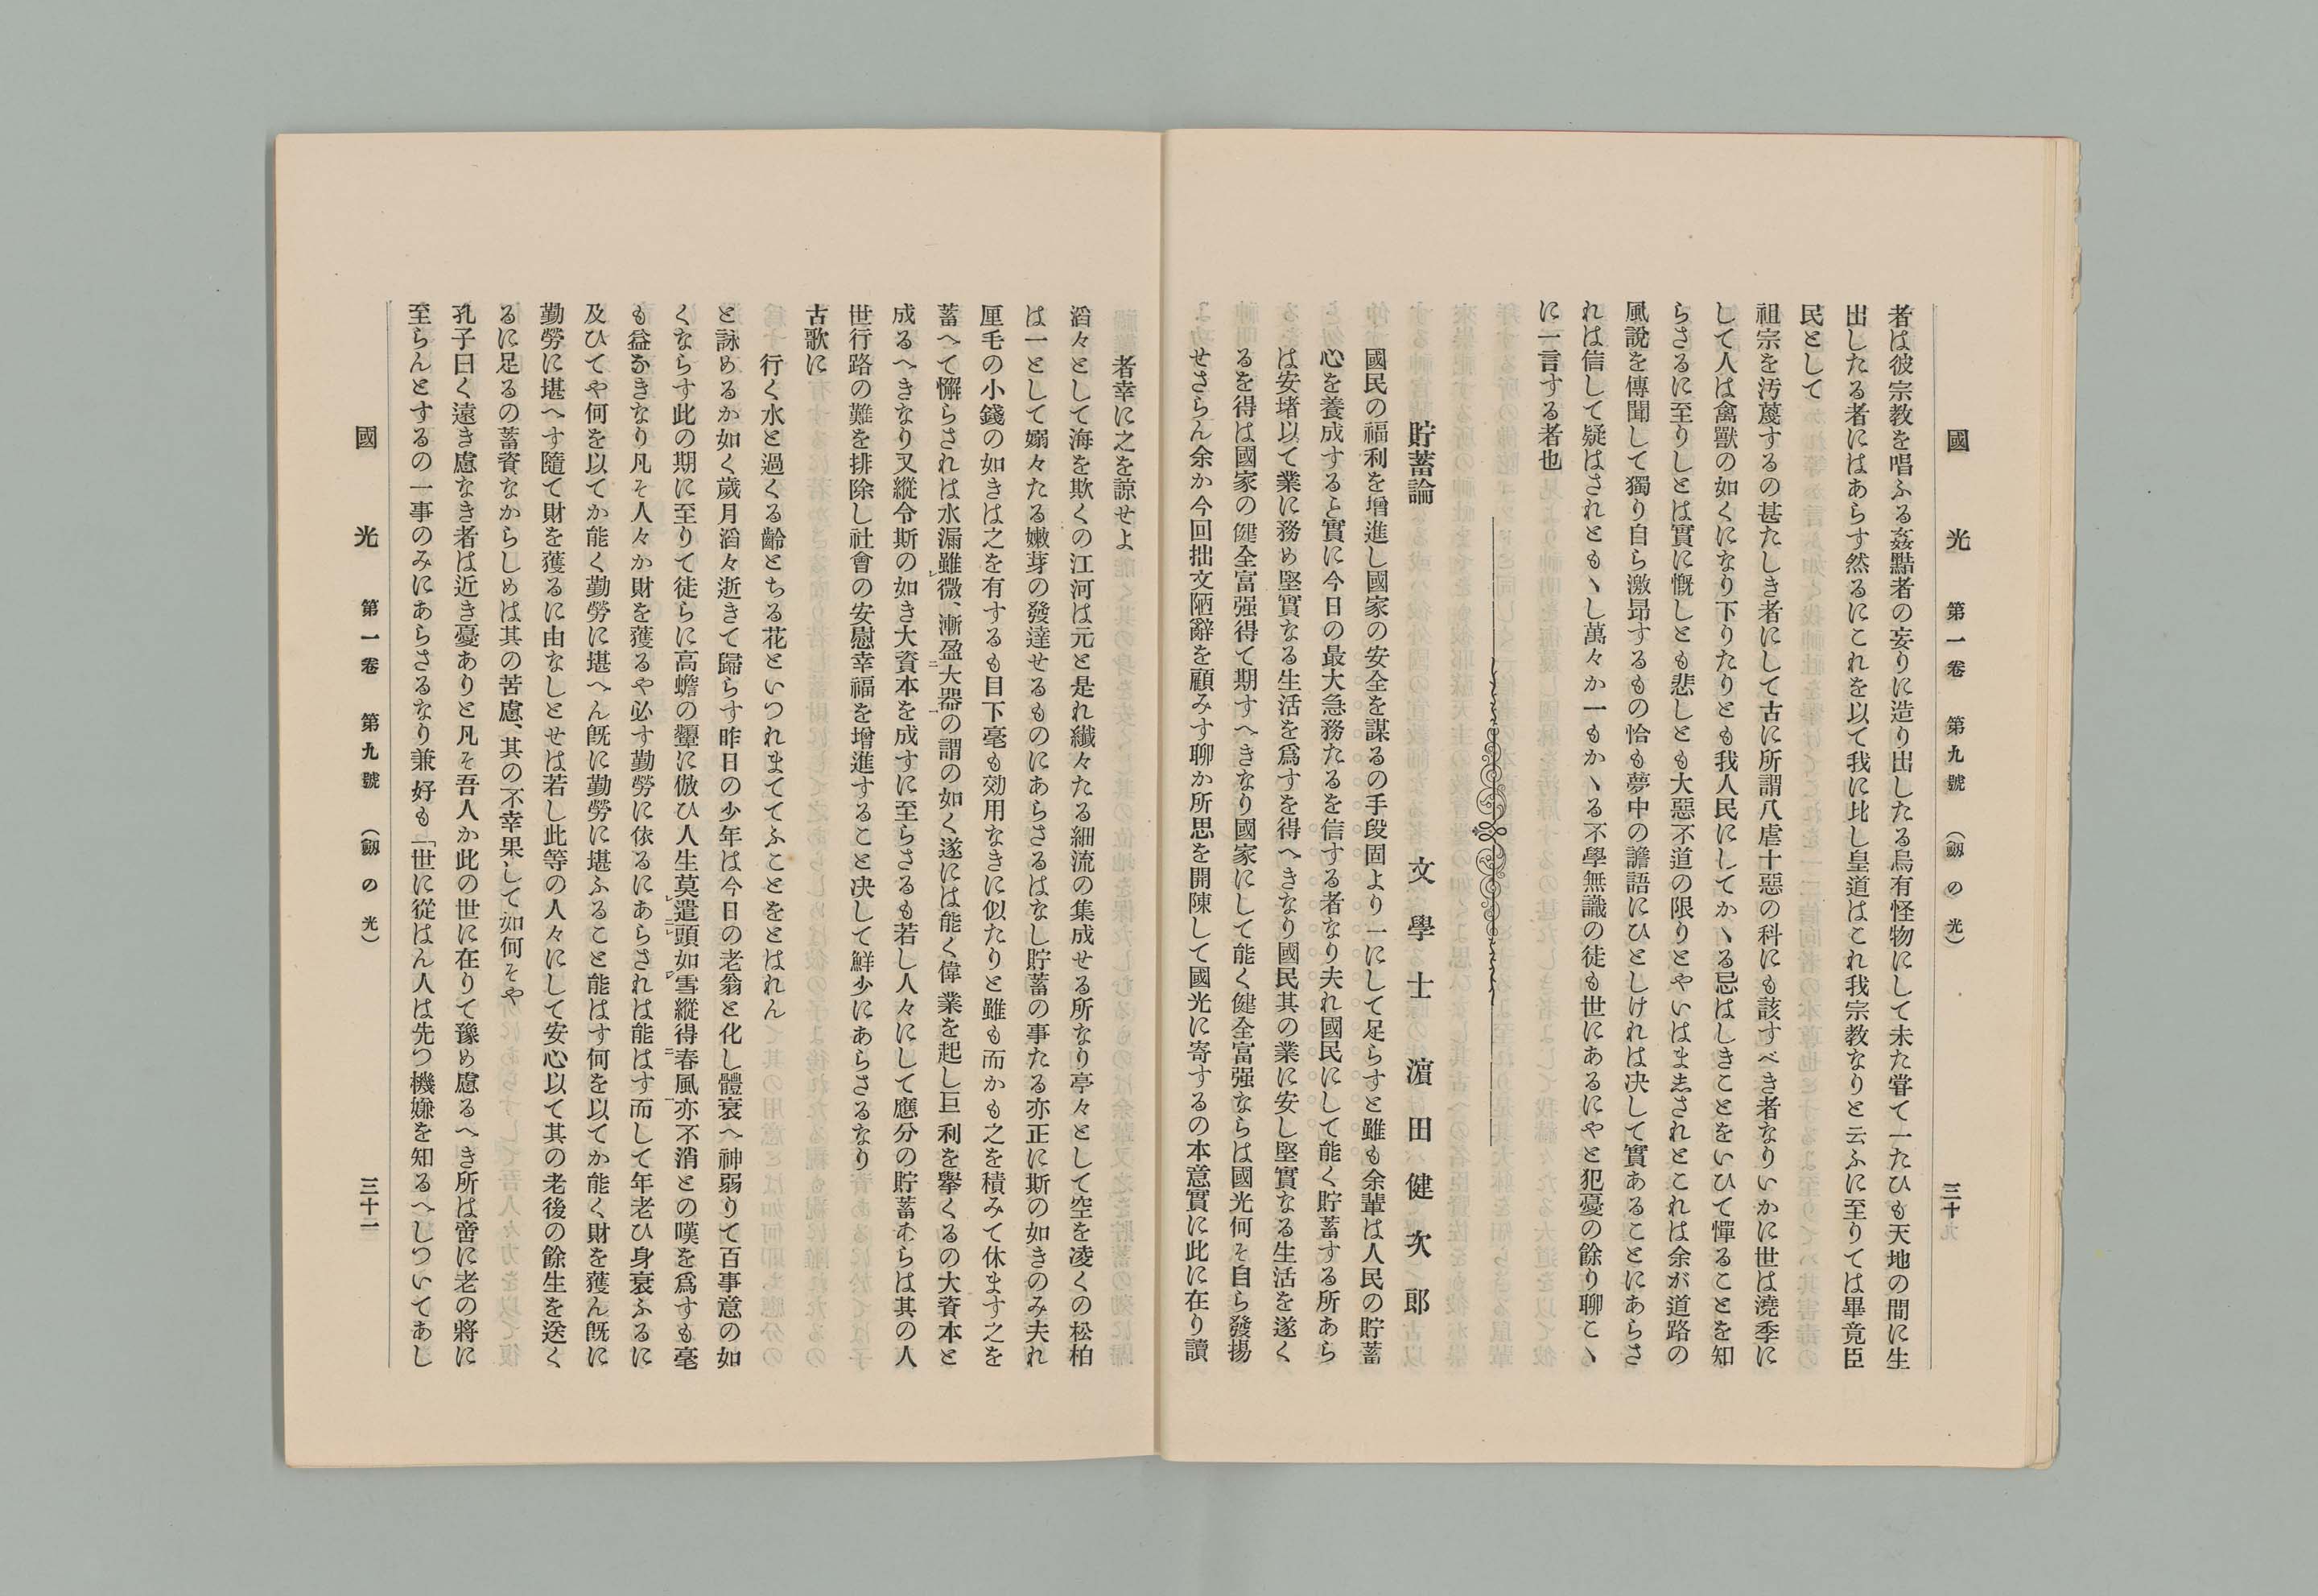 國光 第一卷 第九號 (劔の光) 三十
者は彼宗教を唱ふる姦黠者の妄りに造り出したる烏有怪物にして未た甞て一たひも天地の間に生
出したる者にはあらす然るにこれを以て我に比し皇道はこれ我宗教なりと云ふに至りては畢竟臣
民として
祖宗を汚蔑するの甚たしき者にして古に所謂八虐十惡の科にも該すべき者なりいかに世は澆季に
して人は禽獸の如くになり下りたりとも我人民にしてかゝる忌はしきことをいひて憚ることを知
らさるに至りしとは實に慨しとも悲しとも大惡不道の限りとやいはま志されとこれは余が道路の
風說を傳聞して獨り自ら激昂するもの恰も夢中の譫語にひとしけれは决して實あることにあらさ
れは信して疑はされともゝし萬々か一もかゝる不學無識の徒も世にあるにやと犯憂の餘り聊こゝ
に一言する者也
貯蓄論
文學士 濵田健次郎
國民の福利を增進し國家の安全を謀るの手段固より一にして足らすと雖も余輩は人民の貯蓄
心を養成すると實に今日の最大急務たるを信する者なり夫れ國民にして能く貯蓄する所あら
は安堵以て業に務め堅實なる生活を爲すを得へきなり國民其の業に安し堅實なる生活を遂く
るを得は國家の健全富强得て期すへきなり國家にして能く健全富强ならは國光何そ自ら發揚
せさらん余か今回拙文陋辭を顧みす聊か所思を開陳して國光に寄するの本意實に此に在り讀
者幸に之を諒せよ
滔々として海を欺くの江河は元と是れ纎々たる細流の集成せる所なり亭々として空を凌くの松柏
は一として嫋々たる嫩芽の發達せるものにあらさるはなし貯蓄の事たる亦正に斯の如きのみ夫れ
厘毛の小錢の如きは之を有するも目下毫も効用なきに似たりと雖も而かも之を積みて休ます之を
蓄へて懈らされは水漏雖レ微、漸盈二大器一の謂の如く遂には能く偉業を起し巨利を擧くるの大資本と
成るへきなり又縱令斯の如き大資本を成すに至らさるも若し人々にして應分の貯蓄あらは其の人
世行路の難を排除し社會の安慰幸福を增進すること决して鮮少にあらさるなり
古歌に
行く水と過くる齡とちる花といつれまててふことをとはれん
と詠めるか如く歲月滔々逝きて歸らす昨日の少年は今日の老翁と化し體衰へ神弱りて百事意の如
くならす此の期に至りて徒らに高蟾の顰に倣ひ人生莫レ遣二頭如一レ雪縱得二春風一亦不消との嘆を爲すも毫
も益なきなり凡そ人々か財を獲るや必す勤勞に依るにあらされは能はす而して年老ひ身衰ふるに
及ひてや何を以てか能く勤勞に堪へん既に勤勞に堪ふること能はす何を以てか能く財を獲ん既に
勤勞に堪へす隨て財を獲るに由なしとせは若し此等の人々にして安心以て其の老後の餘生を送く
るに足るの蓄資なからしめは其の苦慮、其の不幸果して如何そや
孔子曰く遠き慮なき者は近き憂ありと凡そ吾人か此の世に在りて豫め慮るへき所は啻に老の將に
至らんとするの一事のみにあらさるなり兼好も「世に從はん人は先つ機嫌を知るへしついてあし
國光 第一卷 第九號 (劔の光) 三十一